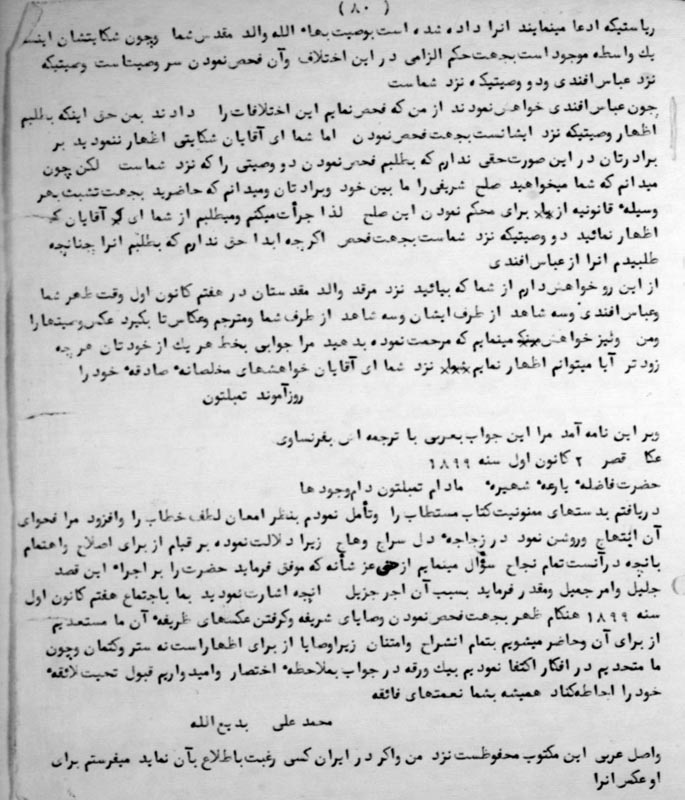 ( ٨٠ )
ریاستیکه ادعا مینمایند انرا داده شده است بوصیت بهاء الله والد مقدس شما وچون شکایتشان اینست
یك واسطه موجود است بجهت حکم الزامی در این اختلاف وآن فحص نمودن سر وصیتاست وصیتیکه
نزد عباس افندی ودو وصیتیکه نزد شماست
چون عباس افندی خواهش نمودند از من که فحص نمایم این اختلافات را دادند بمن حق اینکه بطلبم
اظهار وصیتیکه نزد ایشانست بجهت فحص نمودن اما شما ای آقایان شکایتی اظهار ننمودید بر
برادرتان در این صورت حقی ندارم که بطلبم فحص نمودن دو وصیتی را که نزد شماست لکن چون
میدانم که شما میخواهید صلح شریفی را ما بین خود وبرادتان ومیدانم که حاضرید بجهت تشبث بهر
وسیلهٴ قانونیه از برای محکم نمودن این صلح لذا جرأت میکنم ومیطلبم از شما ای آقایان که
اظهار نمائید دو وصیتیکه نزد شماست بجهت فحص اکرچه ابدا حق ندارم که بطلبم انرا چنانچه
طلبیدم انرا از عباس افندی
از این رو خواهش دارم از شما که بیائید نزد مرقد والد مقدستان در هفتم کانون اول وقت ظهر شما
وعباس افندی وسه شاهد از طرف ایشان وسه شاهد از طرف شما ومترجم وعکاس تا بکیرد عکس وصیتها را
ومن ونیز خواهش مینمایم که مرحمت نموده بدهید مرا جوابی بخط هر یك از خودتان هر چه
زودتر آیا میتوانم اظهار نمایم نزد شما ای آقایان خواهشهای مخلصانهٴ صادقهٴ خود را
روزآموند تمبلتون
وبر این نامه آمد مرا این جواب بعربی با ترجمه اش بفرنساوی
عکا قصر ٢ کانون اول سنه ١٨٩٩
حضرت فاضلهٴ بارعهٴ شهیرهٴ مادام تمبلتون دام وجودها
دریافتم بدستهای ممنونیت کتاب مستطاب را وتأمل نمودم بنظر امعان لطف خطاب را وافزود مرا فحوای
آن ابتهاج وروشن نمود در زجاجهٴ دل سراج وهاج زیرا دلالت نموده بر قیام از برای اصلاح واهتمام
بانچه درآنست تمام نجاح سؤال مینمایم از حق عز شأنه که موفق فرماید حضرت را بر اجراء این قصد
جلیل وامر جمیل ومقدر فرماید بسبب آن اجر جزیل انچه اشارت نمودید بما باجتماع هفتم کانون اول
سنه ١٨٩٩ هنکام ظهر بجهت فحص نمودن وصایای شریفه وکرفتن عکسهای ظریفهٴ آن ما مستعدیم
از برای آن وحاضر میشویم بتمام انشراح وامتنان زیرا وصایا از برای اظهار است نه ستر وکتمان وچون
ما متحدیم در افکار اکتفا نمودیم بیك ورقه در جواب بملاحظهٴ اختصار وامیدواریم قبول تحیت لائقهٴ
خود را احاطه کناد همیشه بشما نعمتهای فائقه
محمد علی بدیع الله
واصل عربی این مکتوب محفوظست نزد من واکر در ایران کسی رغبت باطلاع بآن نماید میفرستم برای
او عکس انرا